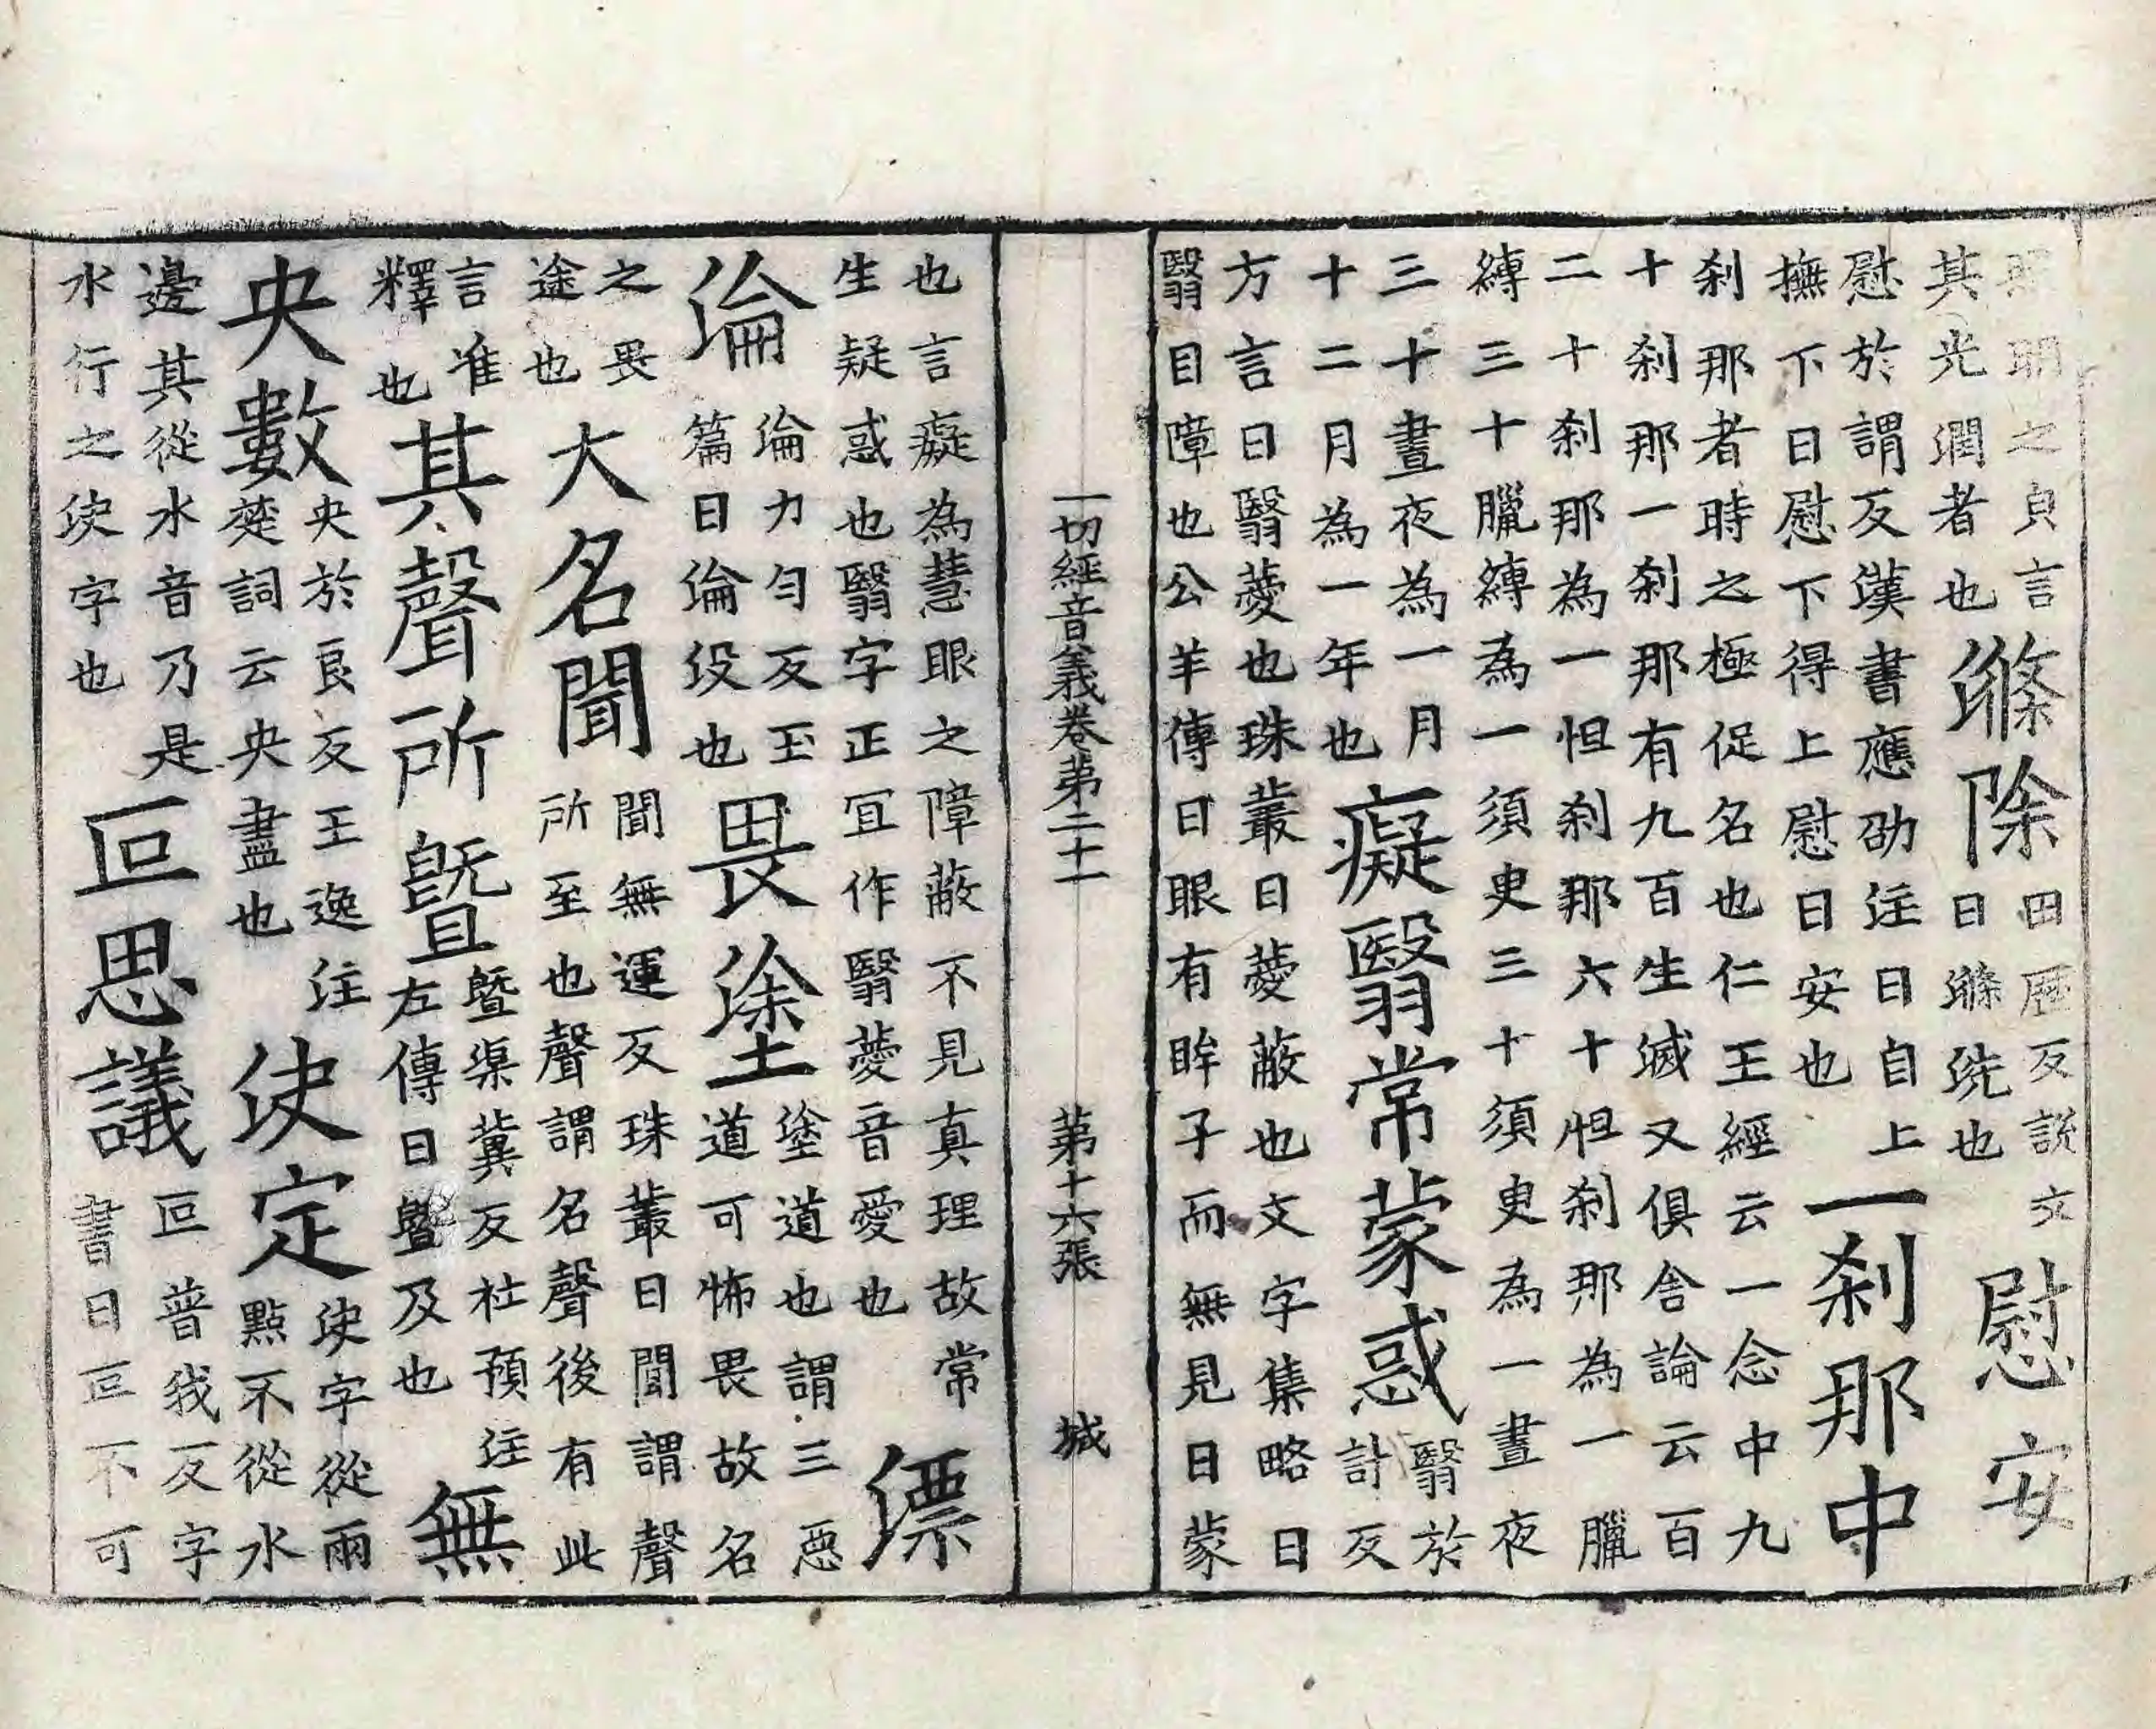 照明之皃言
其光潤者也
滌除
田歷反說文
曰滌洗也
慰安
慰於謂反漢書應劭注曰自上
撫下曰慰下得上慰曰安也
一刹那中
刹那者時之極促名也仁王經云一念中九
十刹那一刹那有九百生滅又俱舍論云百
二十刹那為一怛刹那六十怛刹那為一臘
縛三十臘縛為一須臾三十須臾為一晝夜
三十晝夜為一月
十二月為一年也
癡翳常蒙惑
翳於
計反
方言曰翳薆也珠叢曰薆蔽也文字集略曰
翳目障也公羊傳曰眼有眸子而無見曰蒙
一切經音義卷第二十一 第十六張 城
也言癡為慧眼之障蔽不見真理故常
生疑惑也翳字正冝作翳薆音愛也
漂
淪
淪力勻反玉
篇曰淪没也
畏塗
塗道也謂三惡
道可怖畏故名
之畏
途也
大名聞
聞無運反珠叢曰聞謂聲
所至也聲謂名聲後有此
言准
釋也
其聲所曁
曁渠冀反杜預注
左傳曰曁及也
無
央數
央於良反王逸注
楚詞云央盡也
決定
決字從兩
點不從水
邊其從水音乃是
水行之決字也
叵思議
叵普我反字
書曰叵不可